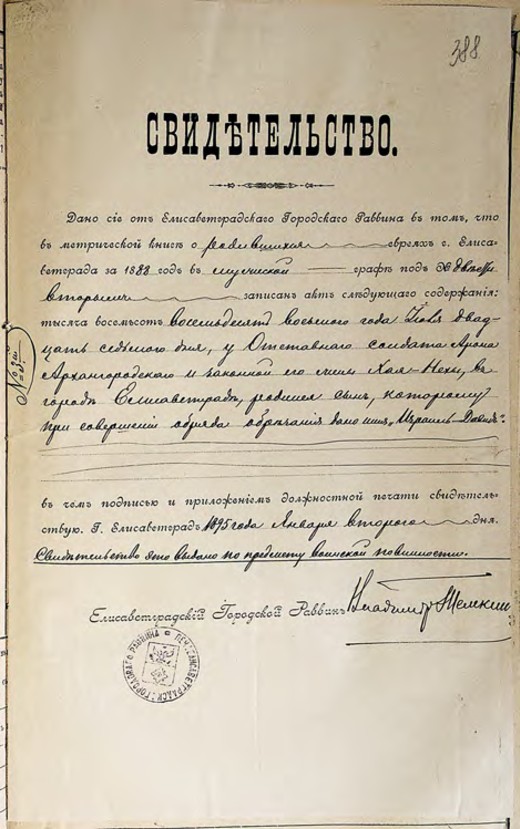 388
СВИДѢТЕЛЬСТВО.
Дано сіе отъ Елисаветградскаго Городскаго Раввина въ томъ, что
въ метрической книгѣ о родившихся евреяхъ г. Елиса-
ветграда за 1888 годъ въ мужской графѣ подъ №
вторымъ записанъ актъ слѣдующаго содержанія:
тысяча восемьсотъ восемьдесятъ восьмого года двад-
цать седьмого дня, у Отставнаго солдата Арона
Архангородскаго и законной его жены Хая-Нехы, въ
городѣ Елисаветградѣ, родился сынъ, которому
при совершеніи обряда обрѣзанія дано имя „Израиль-Давидъ“.
въ чемъ подписью и приложеніемъ должностной печати свидѣтель-
ствую. Г. Елисаветградъ 1895 года Января второго дня.
Свидѣтельство это выдано по предмету воинской повинности.
Елисаветградскій Городской Раввинъ Владиміръ Темкинъ